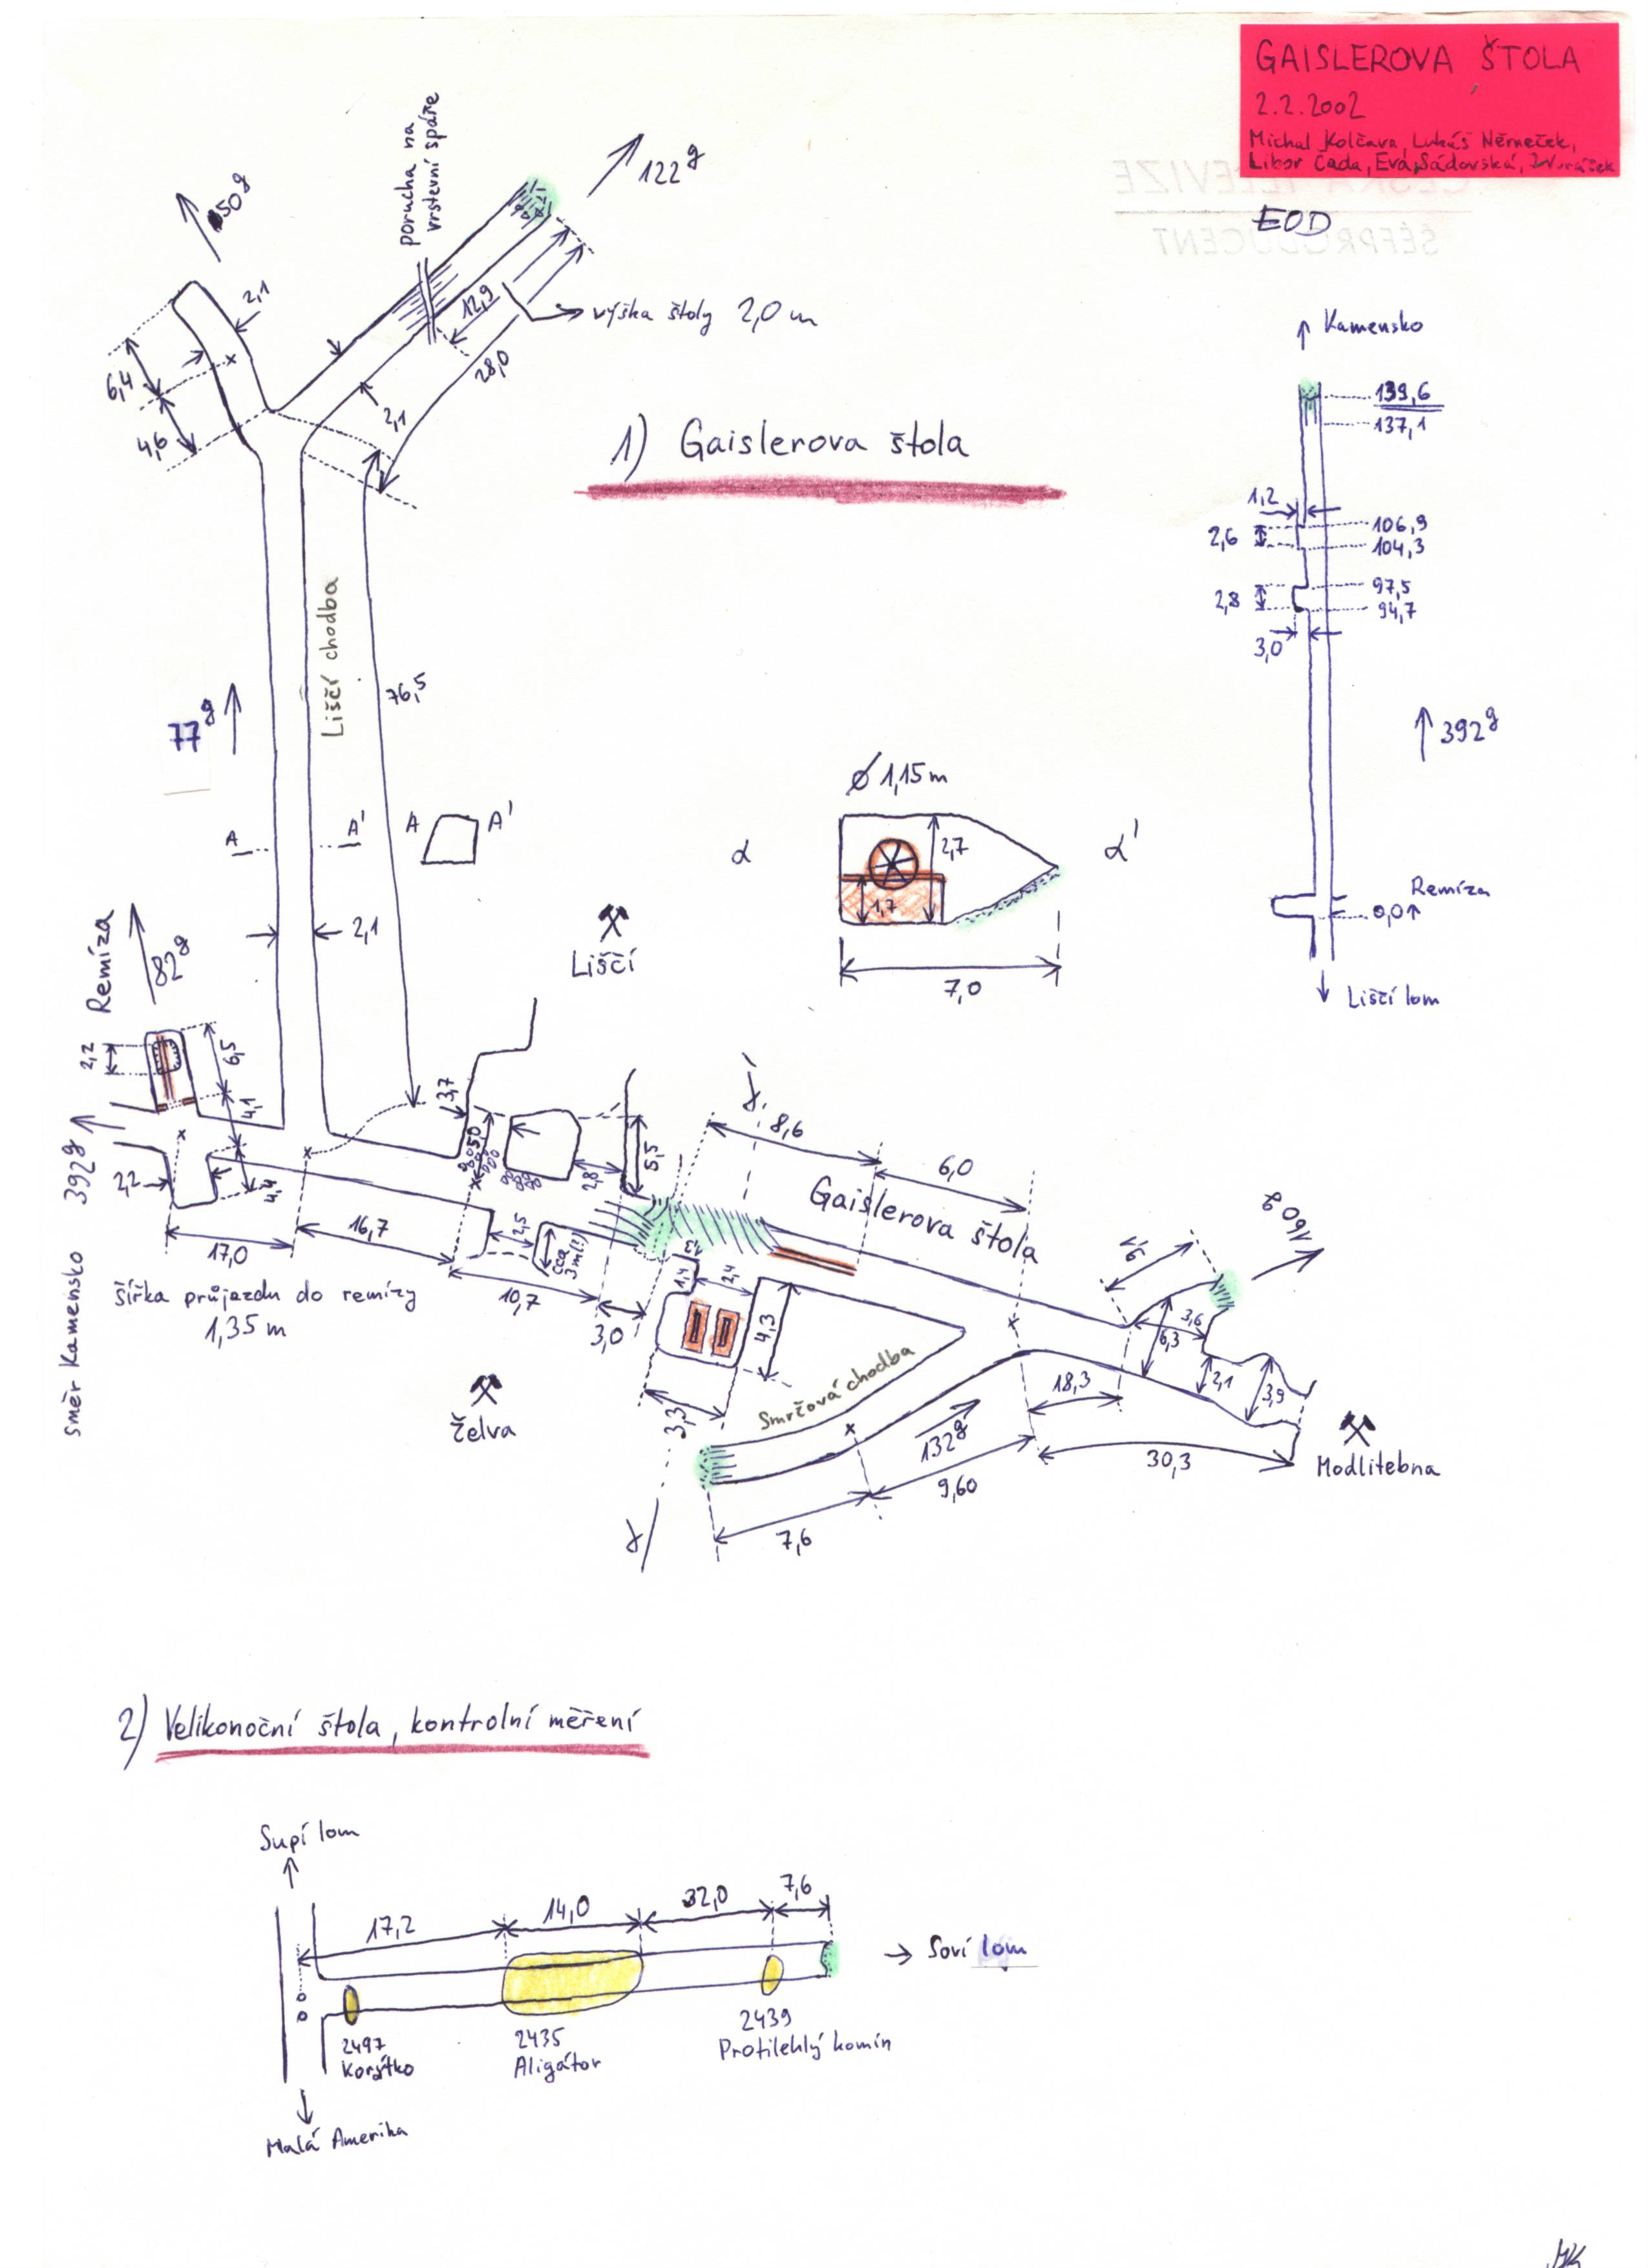 GAISLEROVA ŠTOLA
2.2.2002
Michal Kolčava, Lukáš Němeček,
Libor Cada, Eva Sádovská,
ČESKÁ TELEVIZE
ŠÉFPRODUCENT
EOD
porucha na
vrstevní spáře
122g
50g
2,1
12,9
výška štoly 2,0 m
28,0
6,4
4,6
2,1
1) Gaislerova štola
Kamensko
139,6
137,1
1,2
106,9
2,6
104,3
97,5
2,8
94,7
3,0
392g
Remíza
0,0
Liščí lom
Liščí chodba
76,5
77g
A A'
A A'
2,1
ø 1,15 m
α α'
2,7
1,7
7,0
Liščí
Remíza
82g
2,2
6,5
4,1
směr Kamensko 392g
2,2
4,4
17,0
16,7
šířka průjezdu do remízy
1,35 m
3,7
2,8
5,5
2,5
cca
3m(?)
10,7
3,0
8,6
6,0
Gaislerova štola
1,4
2,4
4,3
3,3
Želva
Smržová chodba
132g
7,6
9,60
18,3
30,3
9,1
160g
3,6
6,3
2,1
3,9
Modlitebna
2) Velikonoční štola, kontrolní měření
Supí lom
17,2
14,0
32,0
7,6
Soví lom
2497
Korýtko
2435
Aligátor
2439
Protilehlý komín
Malá Amerika
MK